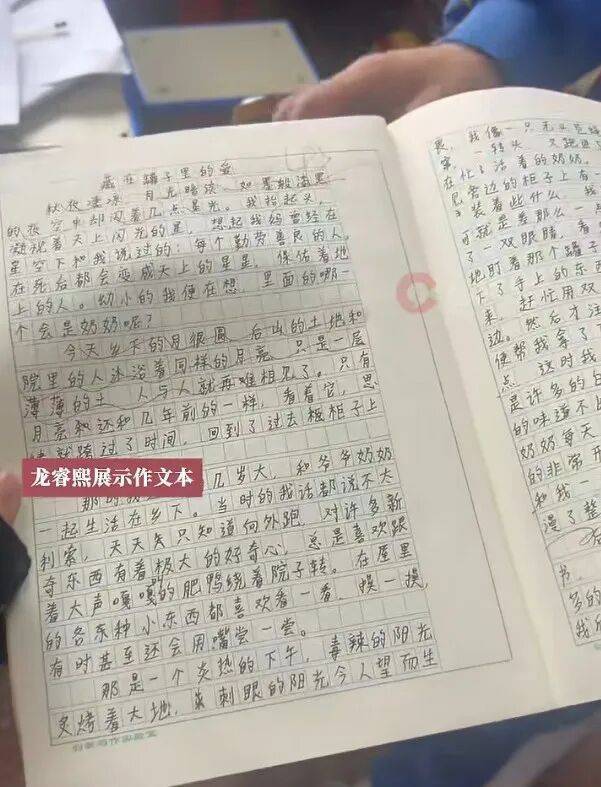 藏在罐子里的爱
秋夜凄凉，月光暗淡，如墨般漆黑
的夜空中却闪着几点星光。我抬起头，
凝视着天上闪光的星，想起我妈曾经在
星空下和我说过的：每个勤劳善良的人，
在死后都会变成天上的星星，保佑着地
上的人。幼小的我便在想，里面的哪一
个会是奶奶呢？
今天乡下的月很圆，后山的土地和
院里的人沐浴着同样的月亮，只是一层
薄薄的土，人与人就再难相见了。只有
月亮和还和几年前的一样，看着它，思
就跨过了时间，回到了过去柜子上
龙睿熙展示作文本
那时我
几岁大，和爷爷奶奶
一起生活在乡下。当时的我话都说不大
利索，天天只知道向外跑，对许多新
奇东西有着极大的好奇心，总是喜欢跟
着大声嘎嘎的肥鸭绕着院子转。在屋里
的各种小东西都喜欢看一看，摸一摸，
有时甚至还会用嘴尝一尝。
那是一个炎热的下午，毒辣的阳光
炙烤着大地，刺眼的阳光令人望而生
良，我像一只无头苍蝇
一转头，又跑进了
在忙活着的奶奶。
尼旁边的柜子上有一
装着些什么，我
可就是差那么一点
了一双眼睛，看
地盯着那个罐子
下了手上的东西
来，赶忙用双
边。然后才注
便帮我拿了下
点，这时我
是许多的白
的味道不比
奶奶每天
的非常开
和我一
漫了整
书，
多的
我后